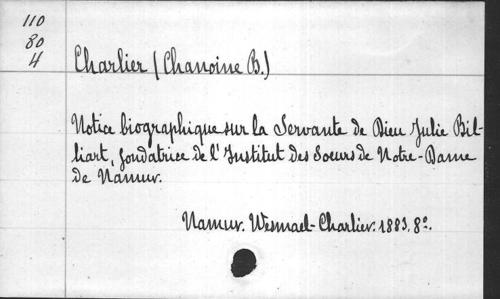 110
80
4
Charlier (Chanoine B.)
Notice biographique sur la Servante de Dieu Julie Bil-
liart, fondatrice de l'Institut des Soeurs de Notre-Dame
de Namur.
Namur. Wesmael-Charlier. 1883. 8º.